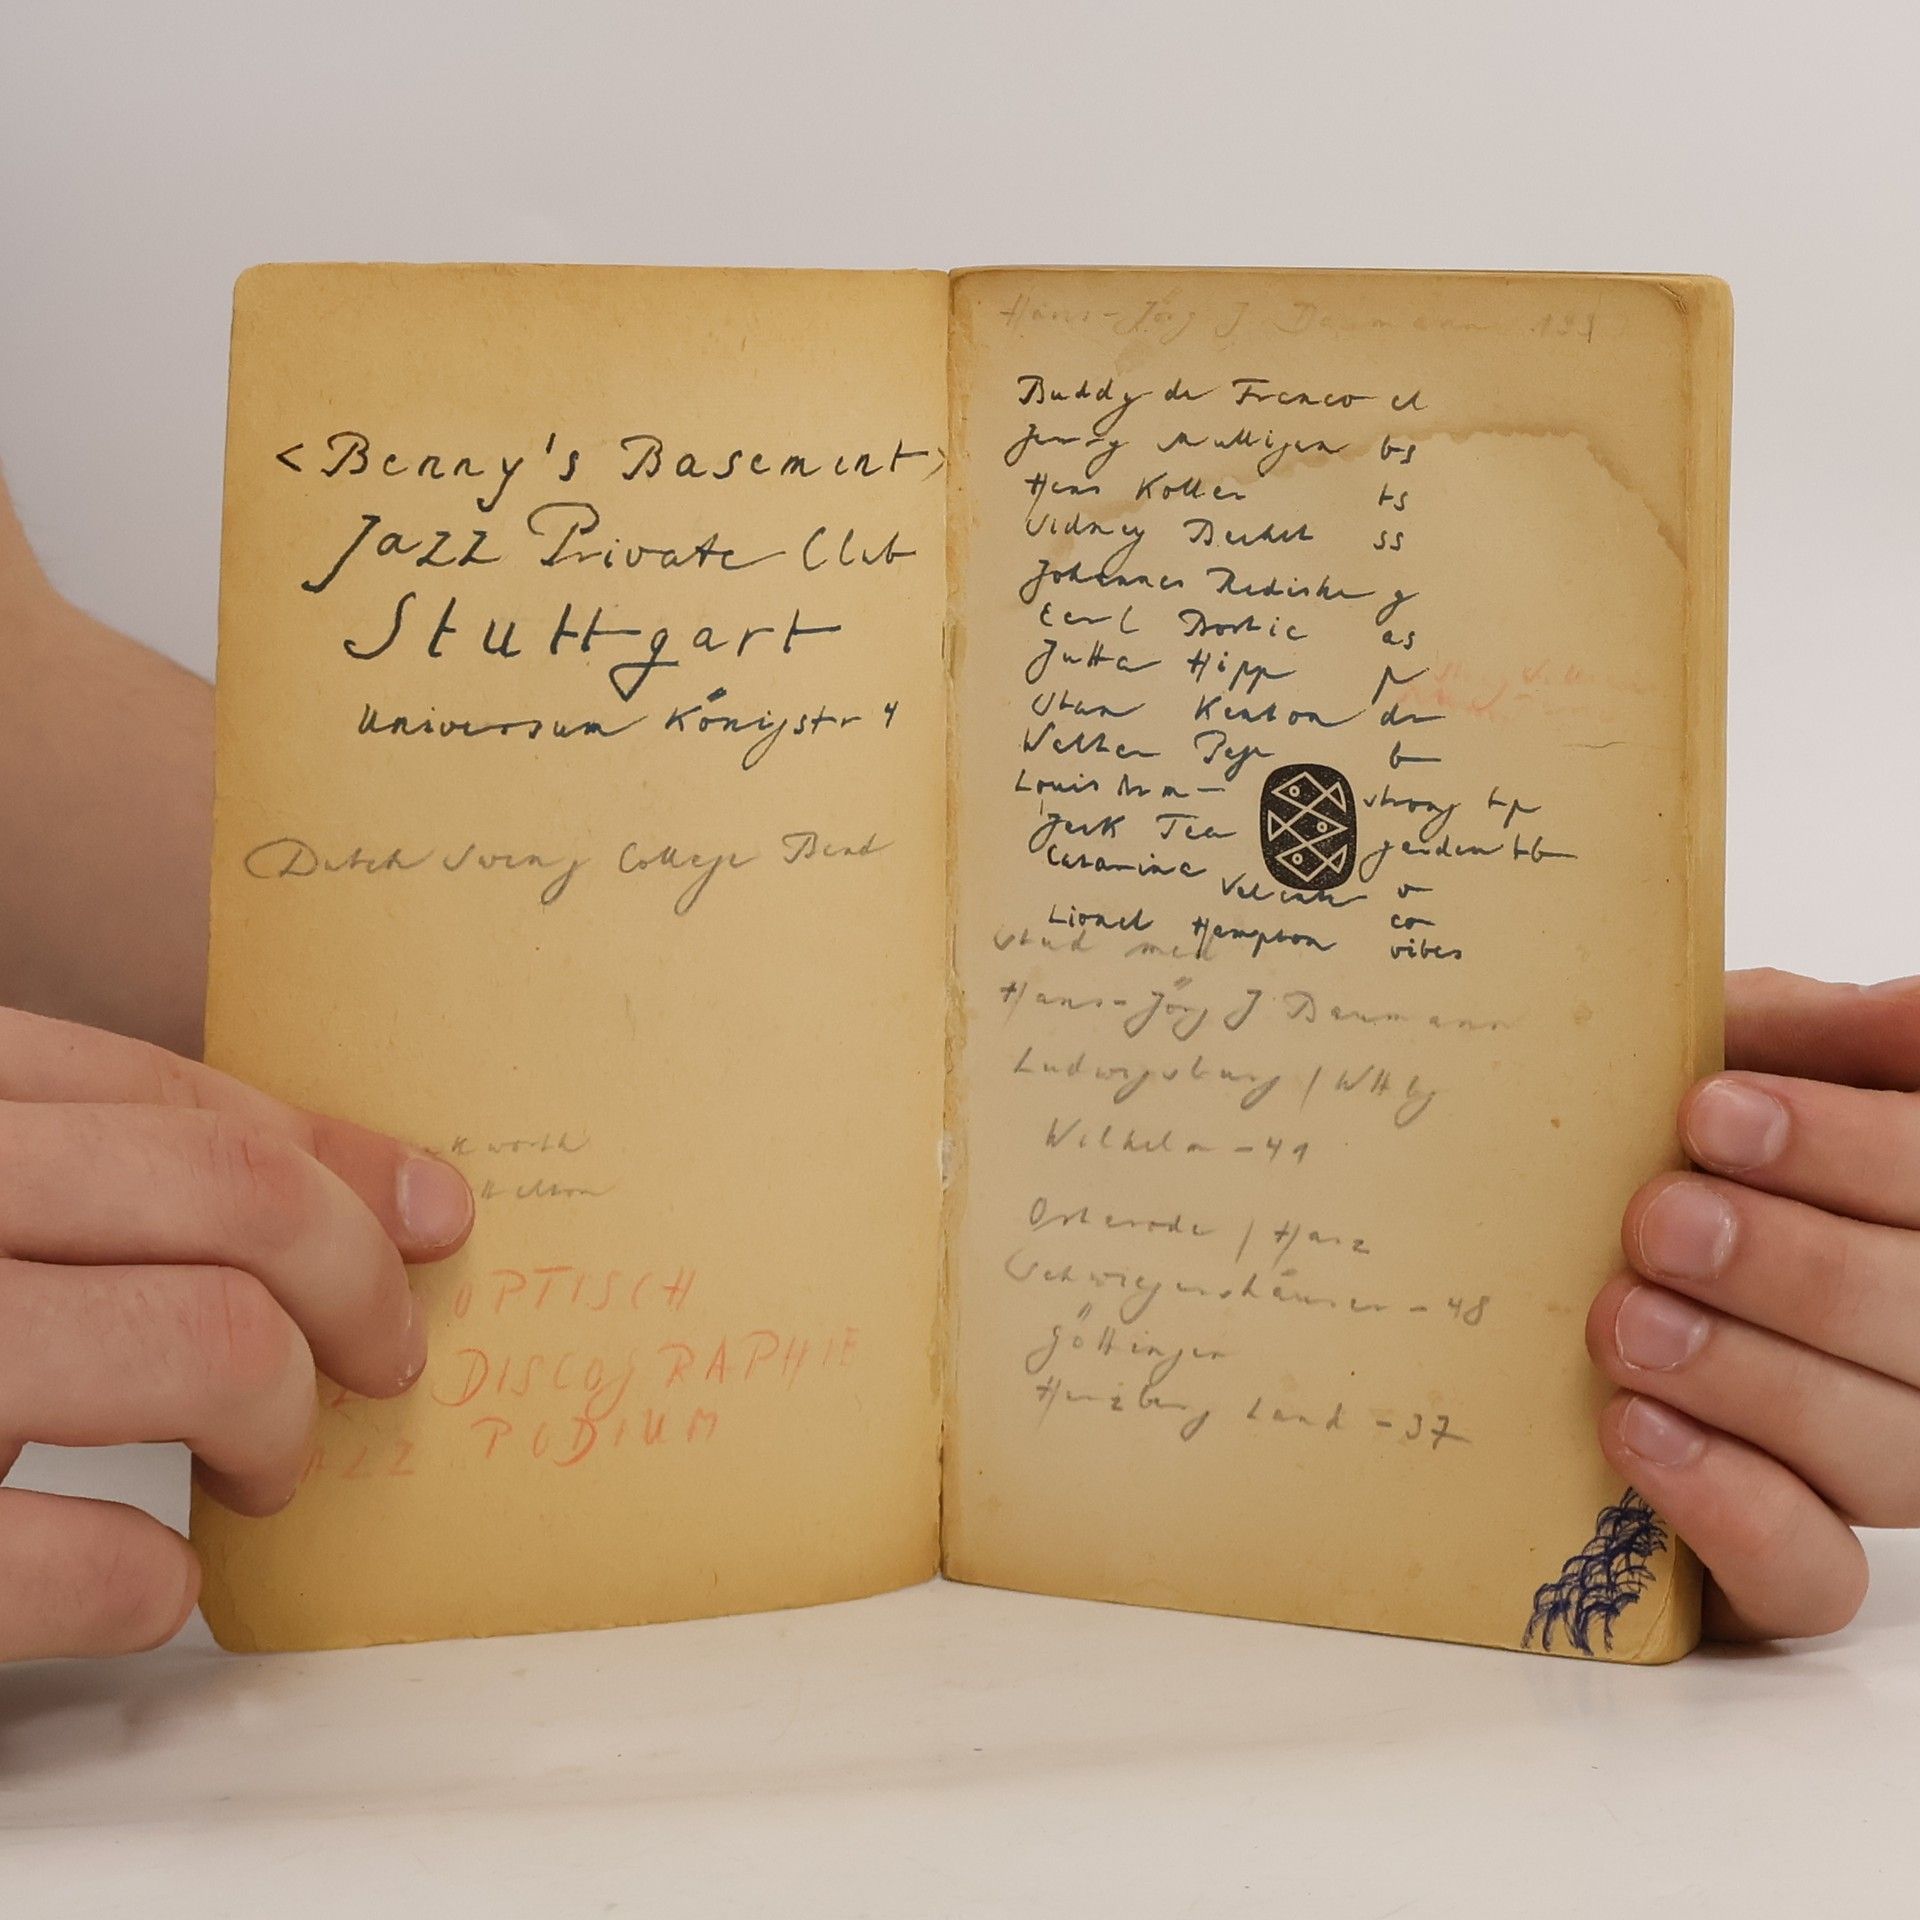 <Benny's Basement>
Jazz Private Club
Stuttgart
Universum Königstr 4
Dutch Swing College Band
worth
OPTISCH
DISCOGRAPHIE
PODIUM
Hans-Jörg J Baumann 195
Buddy de Franco cl
Jerry Mulligan bs
Hans Koller ts
Sidney Bechet ss
Johannes Rediske g
Earl Bostic as
Jutta Hipp p
Stan Kenton dr
Walter Page b
Louis Arm- strong tp
Jack Tea garden tb
Catarina Valente v
co
Lionel Hampton vibes
stud med
Hans-Jörg J Baumann
Ludwigsburg / Wttbg
Wilhelm - 41
Osterode / Harz
Schwiegershäuser - 48
Göttingen
Herzberg Land - 37